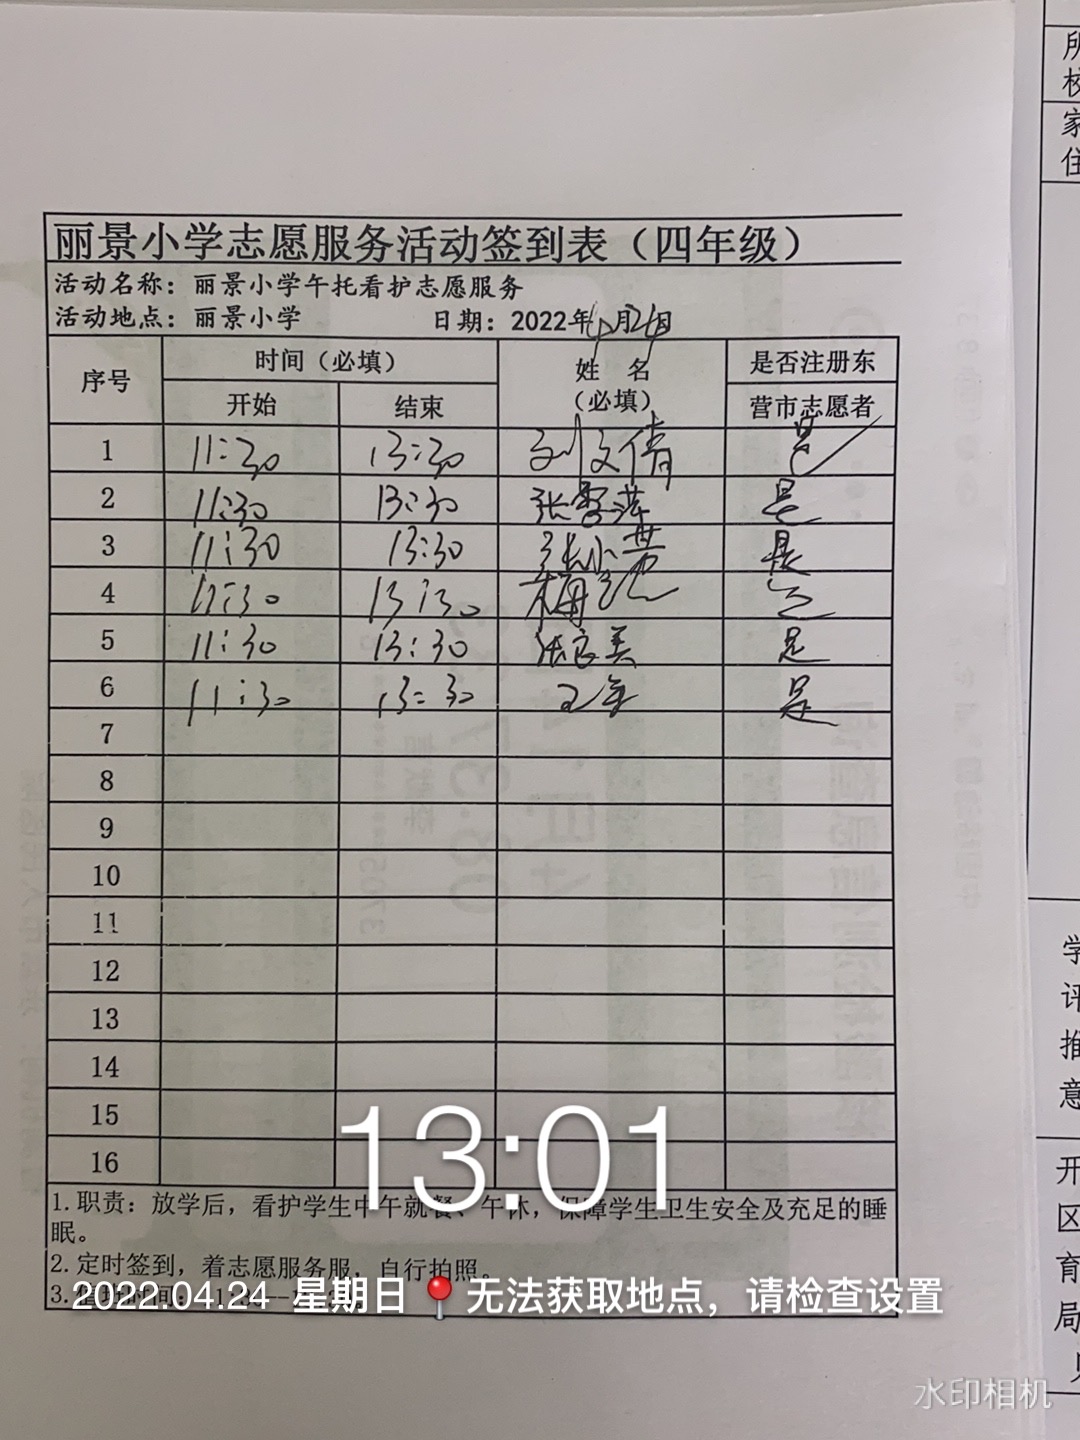 丽景小学志愿服务活动签到表（四年级）
活动名称：丽景小学午托看护志愿服务
活动地点：丽景小学 日期：2022年4月24日
序号 时间（必填） 姓 名（必填） 是否注册东营市志愿者
开始 结束
1 11:30 13:30 刘文倩 是
2 11:30 13:30 张雪萍 是
3 11:30 13:30 张小 是
4 13:30 梅
5 11:30 13:30 张良美 是
6 11:30 13:30 王 是
7
8
9
10
11
12
13
14
15
16
13:01
1.职责：放学后，看护学生中午就餐、午休，保障学生卫生安全及充足的睡
眠。
2.定时签到，着志愿服务服，自行拍照。
3.
2022.04.24 星期日 无法获取地点，请检查设置
水印相机
所
校
家
住
学
评
推
意
开
区
育
局